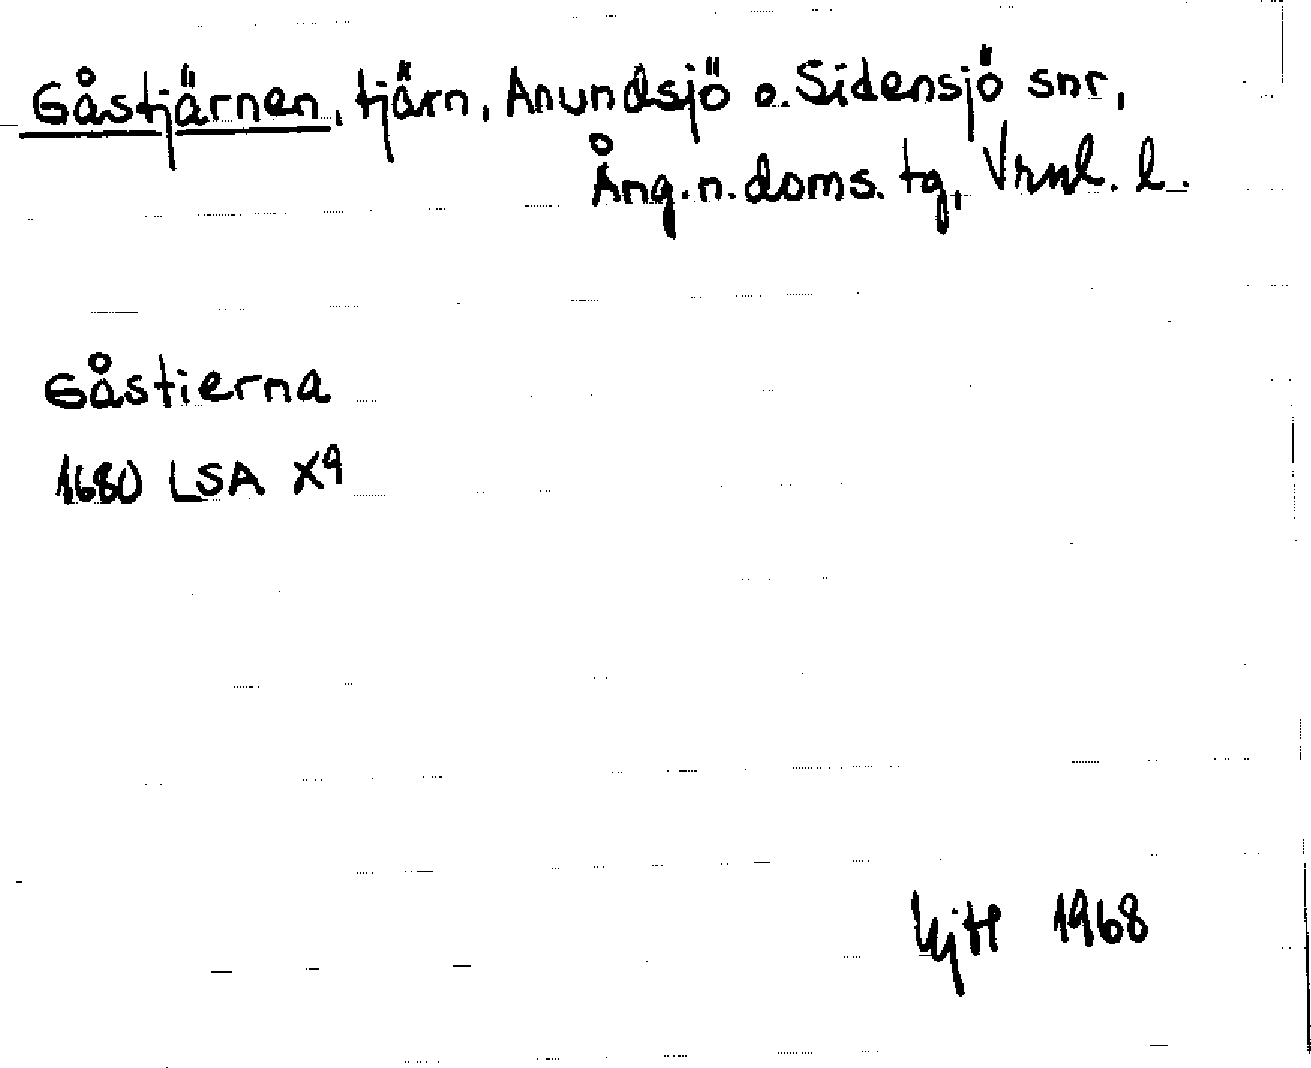 Gåstjärnen, tjärn, Anundsjö o. Sidensjö snr,
Ång. n. doms. tg, Vrnl. l.
Gåstierna
1680 LSA X9
1968